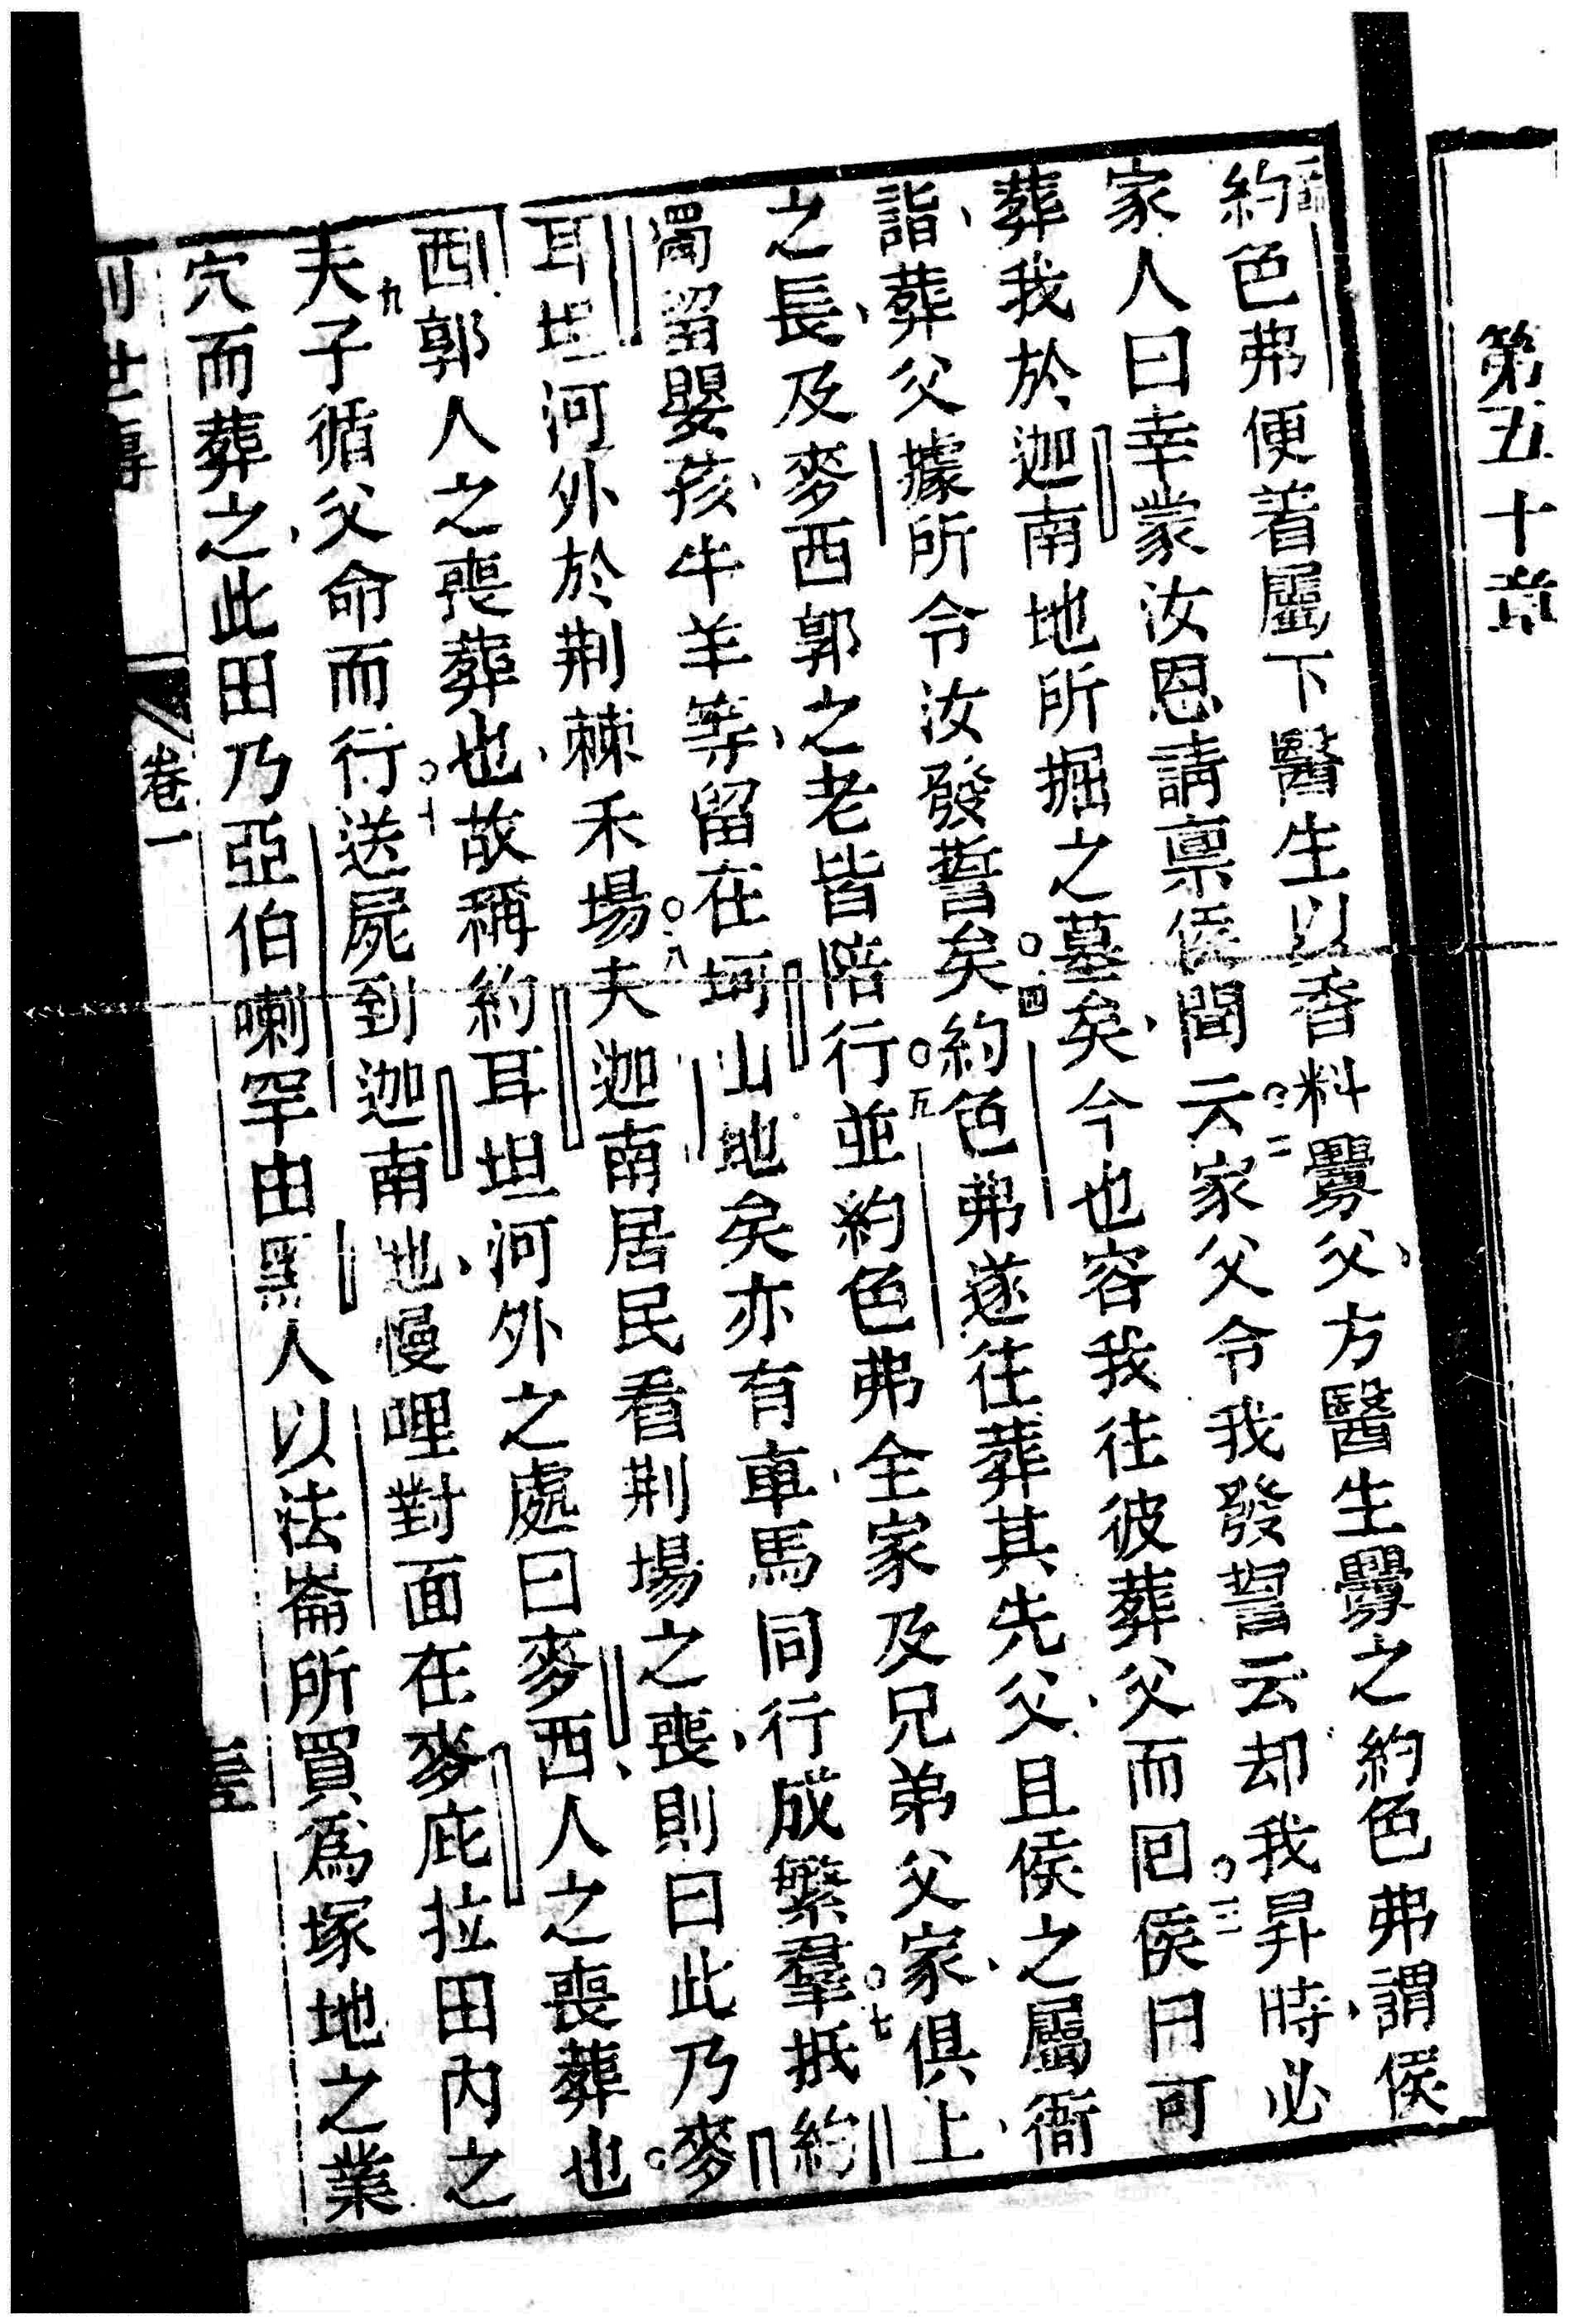 第五十章
約色弗便着屬下醫生以香料釁父方醫生釁之約色弗謂侯
家人曰幸蒙汝恩請禀侯間云家父令我發誓云却我昇時必
葬我於迦南地所掘之墓矣今也容我往彼葬父而回侯曰可
詣葬父據所令汝發誓矣約色弗遂往葬其先父且侯之屬衙
之長及麥西郭之老皆陪行並約色弗全家及兄弟父家俱上
獨留嬰孩牛羊等留在坷山地矣亦有車馬同行成繁羣抵約
耳坦河外於荆棘禾場夫迦南居民看荆場之喪則曰此乃麥
西郭人之喪葬也故稱約耳坦河外之處曰麥西人之喪葬也
夫子循父命而行送屍到迦南地慢哩對面在麥庇拉田內之
穴而葬之此田乃亞伯喇罕由黑人以法崙所買爲塚地之業
卷一